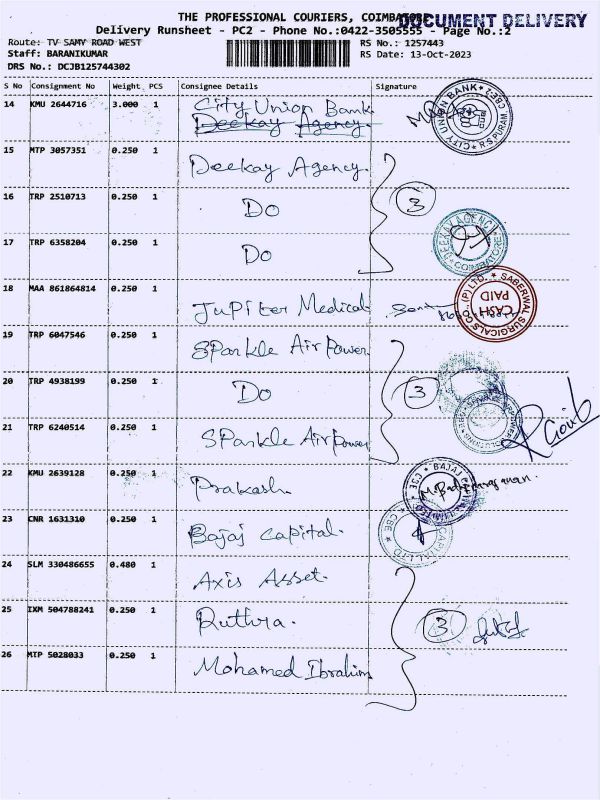 THE PROFESSIONAL COURIERS, COIMBATORE
DOCUMENT DELIVERY
Delivery Runsheet - PC2 - Phone No.:0422-3505555 - Page No.:2
Route: TV SAMY ROAD WEST
RS No.: 1257443
Staff: BARANIKUMAR
RS Date: 13-Oct-2023
DRS No.: DCJB125744302
S No Consignment No Weight PCS Consignee Details Signature
14 KMU 2644716 3.000 1 City Union Bank
Deekay Agency.
CITY UNION BANK R S PURAM, CBE-2
15 MTP 3057351 0.250 1 Deekay Agency.
16 TRP 2510713 0.250 1 Do 3
17 TRP 6358204 0.250 1 Do
DEEKAY AGENCY COIMBATORE
18 MAA 861864814 0.250 1 Jupiter Medical
SABERWAL SURGICALS CO. (P) LTD. CASH PAID
19 TRP 6047546 0.250 1 Sparkle Air Power
20 TRP 4938199 0.250 1 Do 3
21 TRP 6240514 0.250 1 SParkle AirPower
22 KMU 2639128 0.250 1 Prakash.
BAJAJ
23 CNR 1631310 0.250 1 Bajaj Capital.
CAPITAL LTD CBE
24 SLM 330486655 0.480 1 Axis Asset.
25 IXM 504788241 0.250 1 Ruthra. 3
26 MTP 5028033 0.250 1 Mohamed Ibrahim